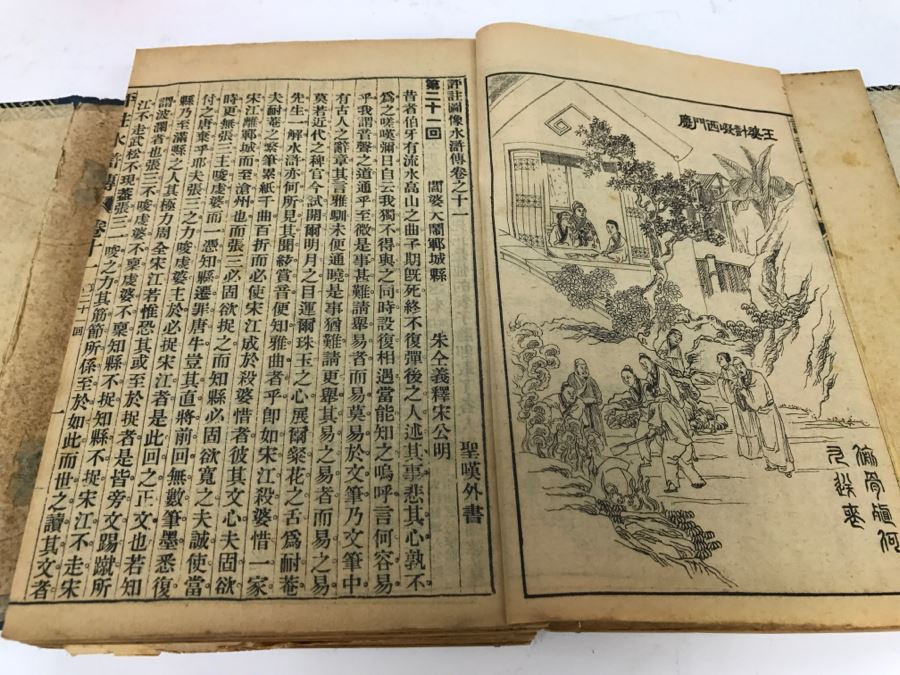 王婆計啜西門慶
偷骨殖何
九送喪
評註圖像水滸傳卷之十一
聖嘆外書
第二十一回 閻婆大鬧鄆城縣 朱仝義釋宋公明
昔者伯牙有流水高山之曲子期旣死終不復彈後之人述其事悲其心孰不
爲之嗟嘆彌日自云我獨不得與之同時設復相遇當能知之嗚呼言何容易
乎我謂音聲之道通乎至微是事甚難請舉易者而易莫易於文筆乃文筆中
有古人之辭章其言雅馴未便通曉是事猶難請更舉其易之易者而易之易
莫若近代之稗官今試開爾明月之目運爾珠玉之心展爾粲花之舌爲耐菴
先生一解水滸亦何所見其聞絃賞音便知雅曲者乎即如宋江殺婆惜一家
夫耐菴之繁筆累紙千曲百折而必使宋江成於殺婆惜者彼其文心夫固欲
宋江離鄆城而至滄州也而張三必固欲捉之而知縣必固欲寬之夫誠使當
時更無張三主唆虔婆而一憑知縣遷罪唐牛豈其直將前回無數筆墨悉復
付之唐棄乎耶夫張三之力唆虔婆主於必捉宋江者是此回之正文也若知
縣乃至滿縣之人其極力周全宋江若惟恐其或至於捉者是皆旁文踢蹴所
謂波瀾者也張三不唆虔婆不稟虔婆不稟知縣不捉知縣不捉宋江不走宋
江不走武松不現蓋張三一唆之力其筋節所係至於如此而世之讀其文者
評註水滸傳 卷十一 二十一回 一